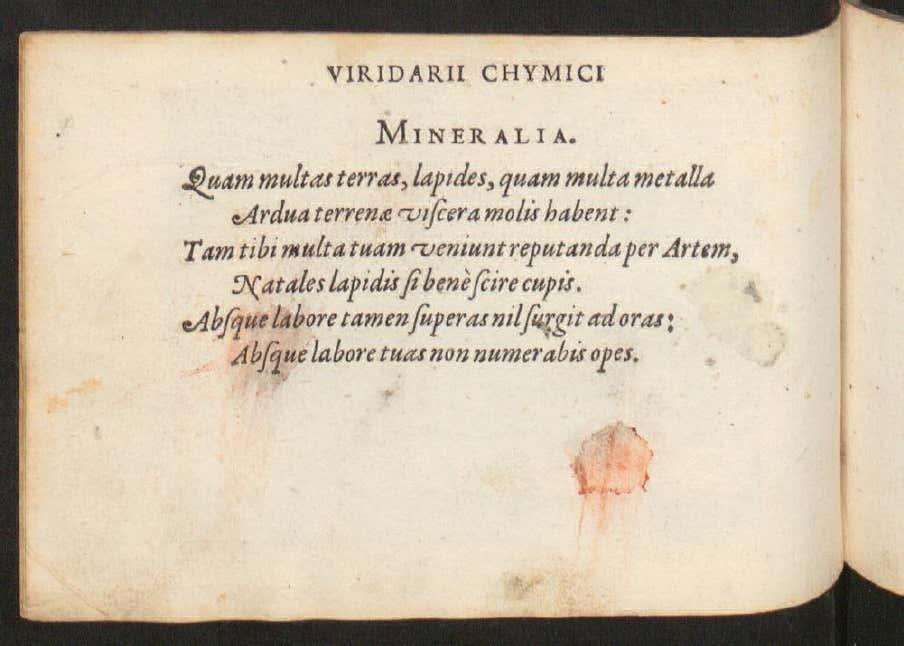 VIRIDARII CHYMICI
MINERALIA.
Quam multas terras, lapides, quam multa metalla
Ardua terrenæ viſcera molis habent:
Tam tibi multa tuam veniunt reputanda per Artem,
Natales lapidis ſi benè ſcire cupis.
Abſque labore tamen ſuperas nil ſurgit ad oras;
Abſque labore tuas non numerabis opes.